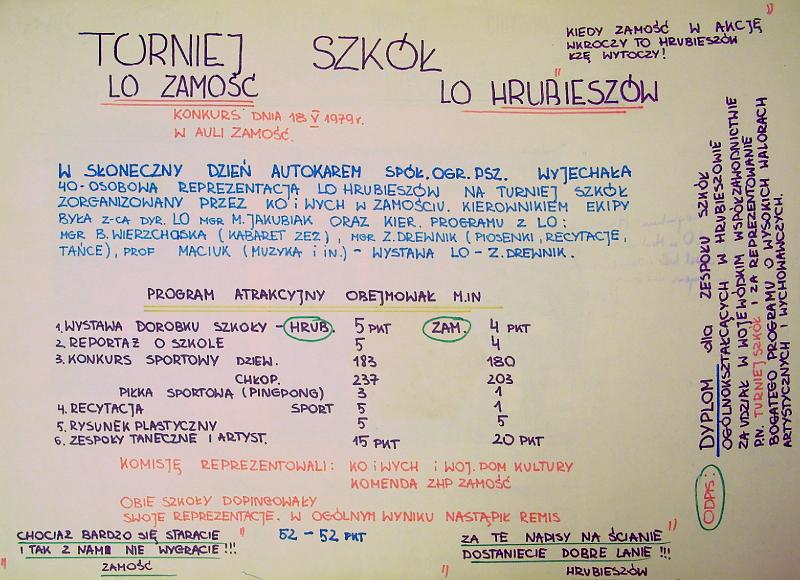 TURNIEJ SZKÓŁ
LO ZAMOŚĆ
LO HRUBIESZÓW
"KIEDY ZAMOŚĆ W AKCJĘ
WKROCZY TO HRUBIESZÓW
ŁZĘ WYTOCZY!"
KONKURS DNIA 18 V 1979 r.
W AULI ZAMOŚĆ.
W SŁONECZNY DZIEŃ AUTOKAREM SPÓŁ. OGR. PSZ. WYJECHAŁA
40-OSOBOWA REPREZENTACJA LO HRUBIESZÓW NA TURNIEJ SZKÓŁ
ZORGANIZOWANY PRZEZ KO i WYCH W ZAMOŚCIU. KIEROWNIKIEM EKIPY
BYŁA Z-CA DYR. LO MGR M. JAKUBIAK ORAZ KIER. PROGRAMU Z LO:
MGR B. WIERZCHOSKA (KABARET ZEZ), MGR Z. DREWNIK (PIOSENKI, RECYTACJE,
TAŃCE), PROF MACIUK (MUZYKA i IN.) – WYSTAWA LO – Z. DREWNIK.
PROGRAM ATRAKCYJNY OBEJMOWAŁ M.IN
1. WYSTAWA DOROBKU SZKOŁY – HRUB. 5 PKT ZAM. 4 PKT
2. REPORTAŻ O SZKOLE 5 4
3. KONKURS SPORTOWY DZIEW. 183 180
CHŁOP. 237 203
PIŁKA SPORTOWA (PINGPONG) 3 1
4. RECYTACJA SPORT 5 1
5. RYSUNEK PLASTYCZNY 5 5
6. ZESPOŁY TANECZNE I ARTYST. 15 PKT 20 PKT
KOMISJĘ REPREZENTOWALI: KO i WYCH i WOJ. DOM KULTURY
KOMENDA ZHP ZAMOŚĆ
OBIE SZKOŁY DOPINGOWAŁY
SWOJE REPREZENTACJE. W OGÓLNYM WYNIKU NASTĄPIŁ REMIS
52 – 52 PKT
CHOCIAŻ BARDZO SIĘ STARACIE "
" I TAK Z NAMI NIE WYGRACIE !!!
ZAMOŚĆ
ZA TE NAPISY NA ŚCIANIE "
DOSTANIECIE DOBRE LANIE !!!
" HRUBIESZÓW
ODPIS:
DYPLOM dla ZESPOŁU SZKÓŁ
OGÓLNOKSZTAŁCĄCYCH W HRUBIESZOWIE
ZA UDZIAŁ W WOJEWÓDZKIM WSPÓŁZAWODNICTWIE
P.N. TURNIEJ SZKÓŁ I ZA REPREZENTOWANIE
BOGATEGO PROGRAMU O WYSOKICH WALORACH
ARTYSTYCZNYCH I WYCHOWAWCZYCH.